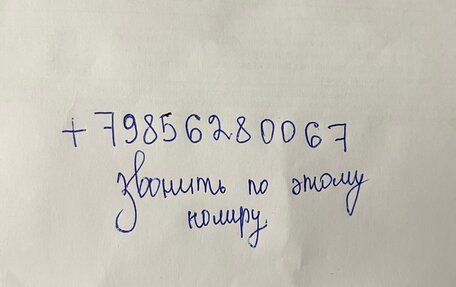 +79856280067
звонить по этому
номиру.